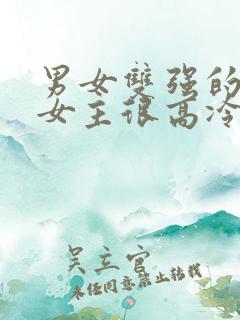 男女雙强的
女王很高冷
吴立官
未任同意禁止转载